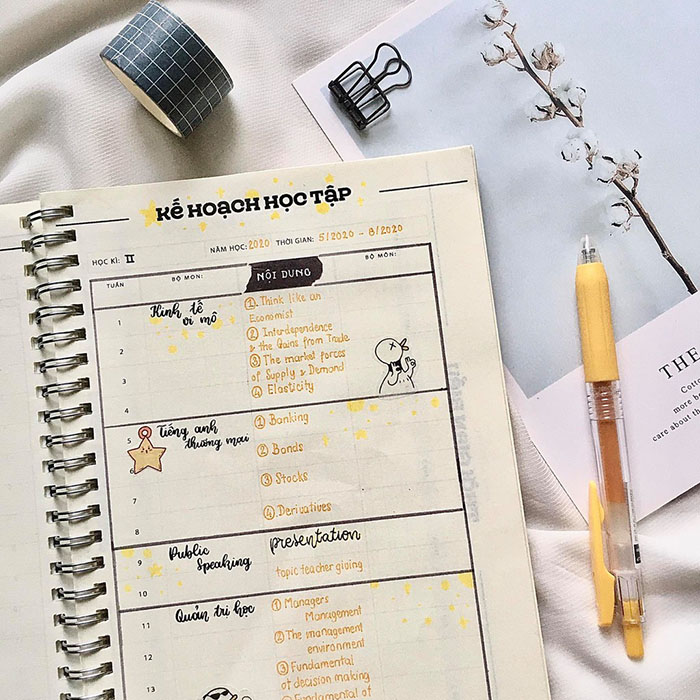 KẾ HOẠCH HỌC TẬP
HỌC KÌ: II NĂM HỌC: 2020 THỜI GIAN: 5/2020 - 8/2020
TUẦN BỘ MÔN: NỘI DUNG BỘ MÔN:
1
2
3
4
Kinh tế
vi mô
① Think like an
Economist
② Interdependence
& the Gains from Trade
③ The market forces
of Supply & Demand
④ Elasticity
5
6
7
8
Tiếng anh
thương mại
① Banking
② Bonds
③ Stocks
④ Derivatives
9
10
Public
Speaking
presentation
topic teacher giving
11
12
13
Quản trị học
① Managers
Management
② The management
environment
③ Fundamental
of decision making
④ Fundamental of
THE
Cott
more b
care about t